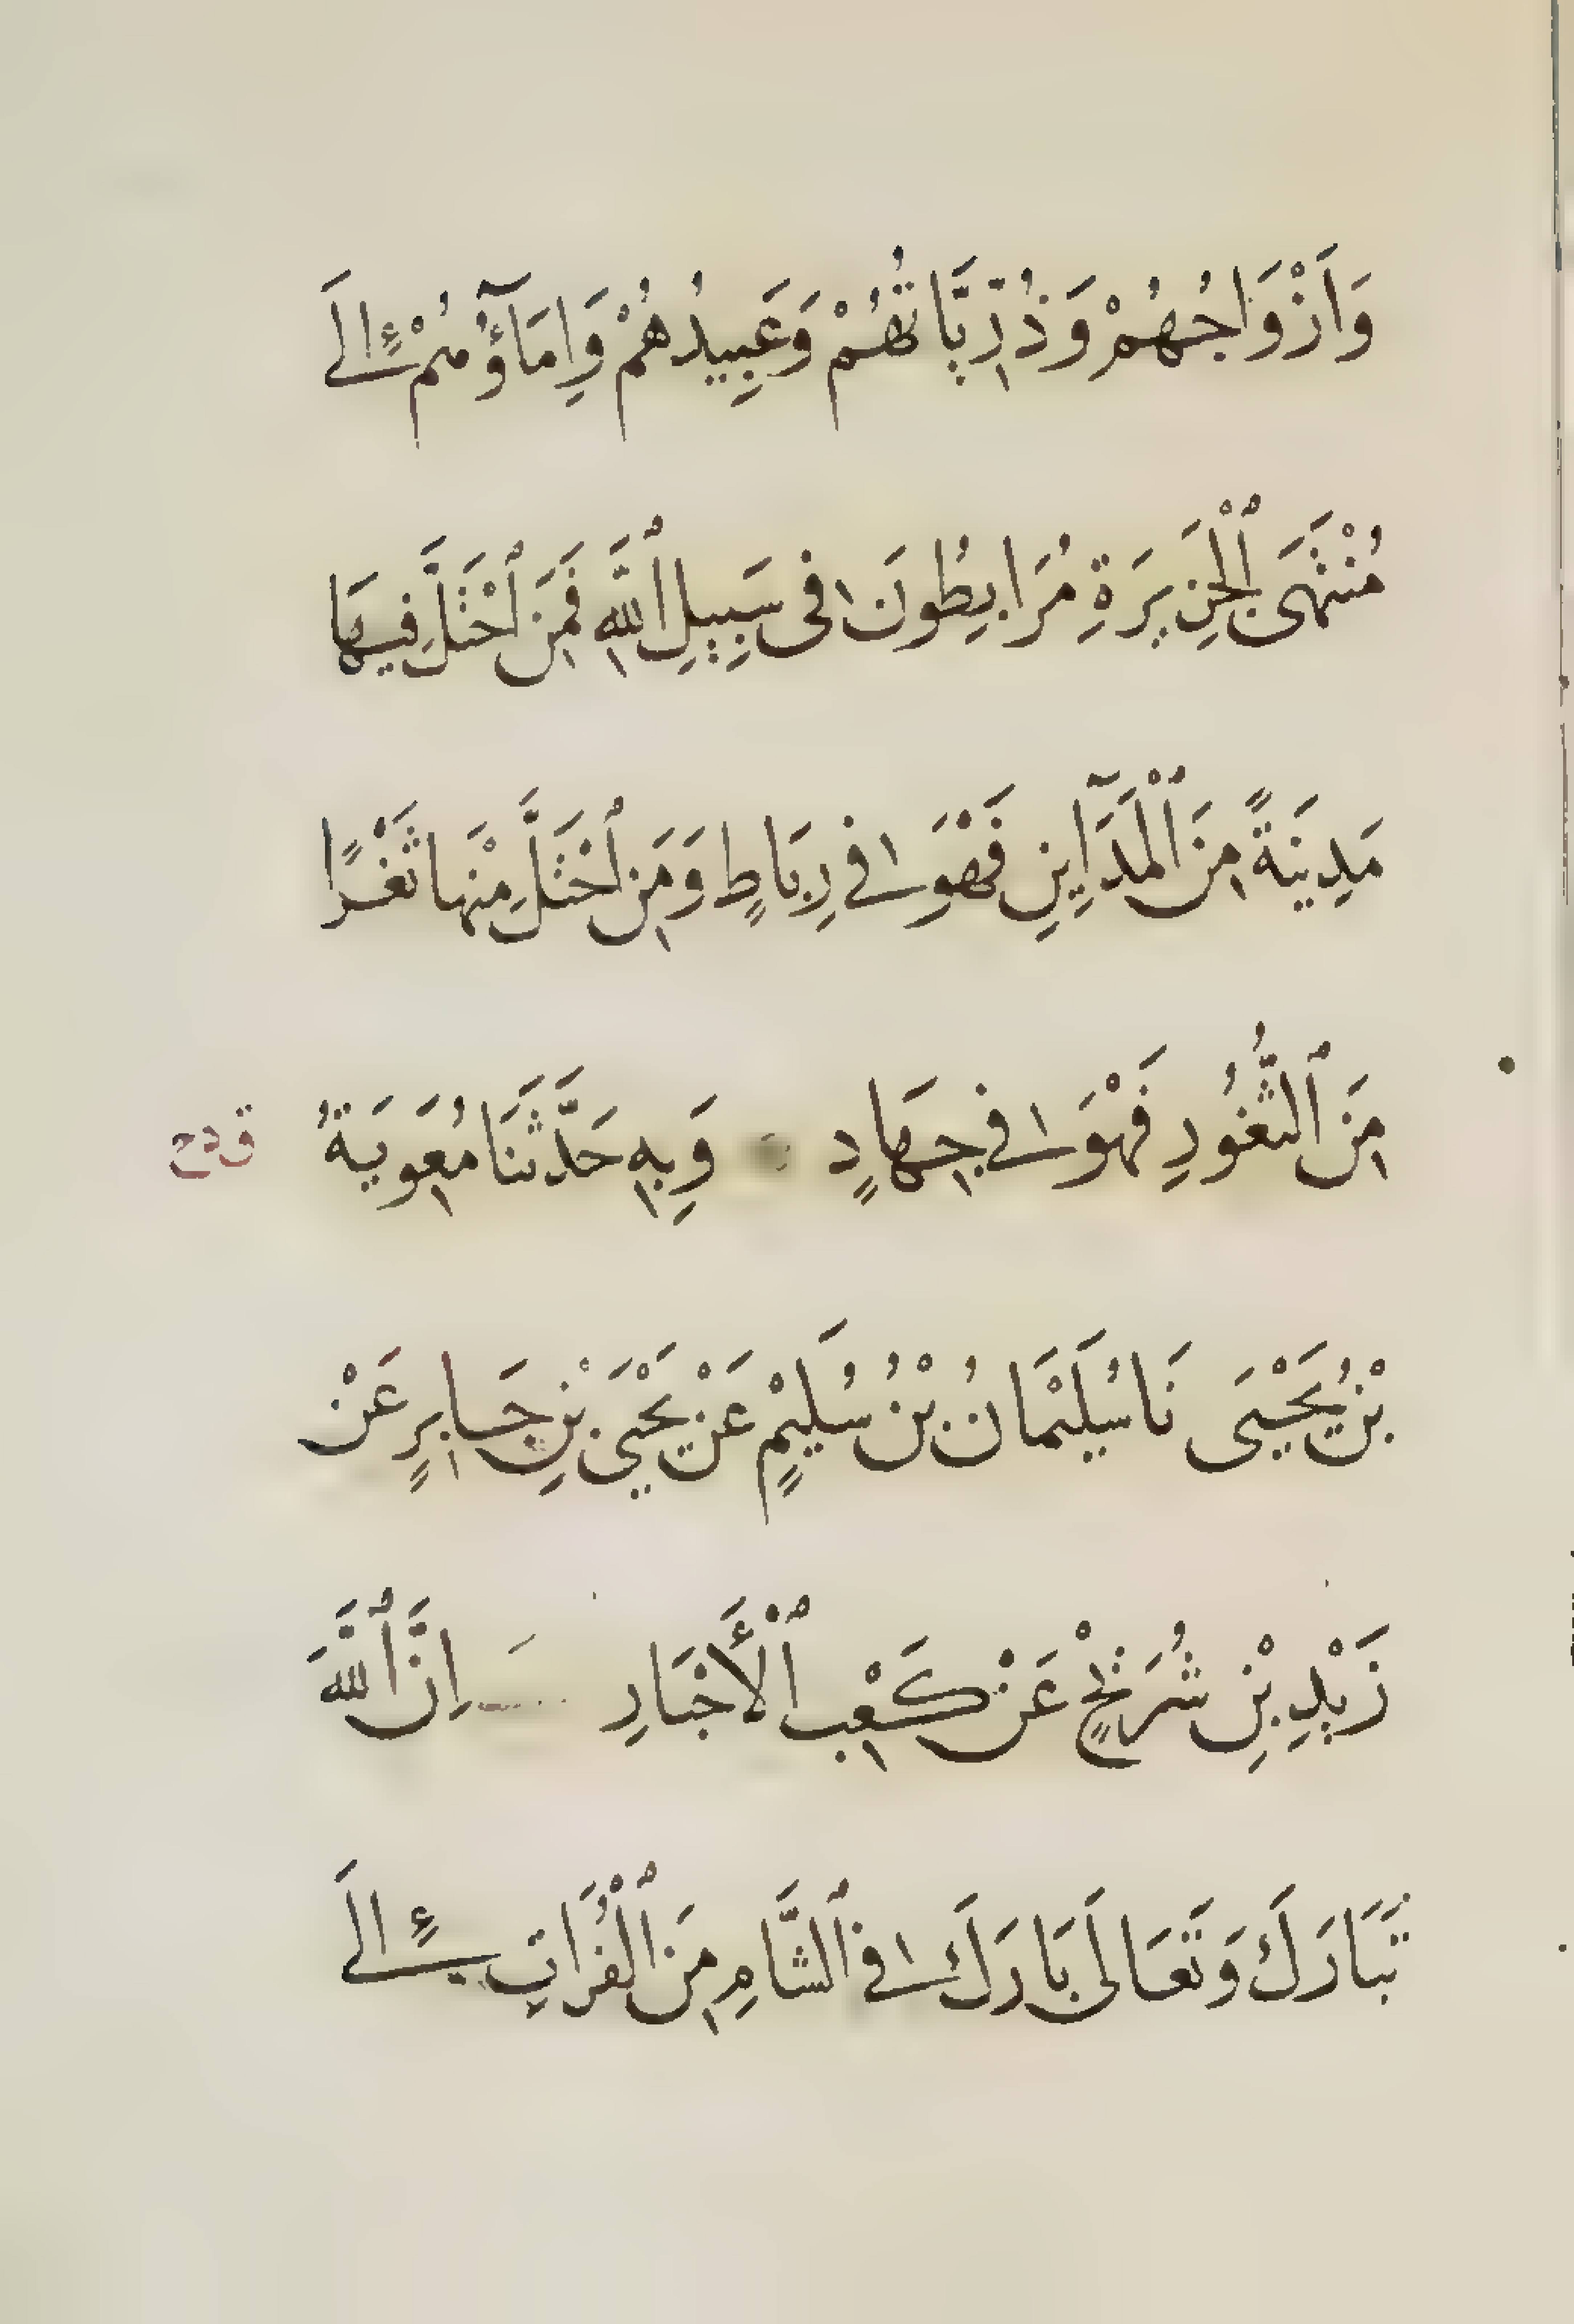 وَاَزْوَاجُهُمْ وَذُرِّيَّاتُهُمْ وَعَبِيدُهُمْ وَاِمَآؤُهُمْ إِلَى
مُنْتَهَى ٱلْجَزِيرَةِ مُرَابِطُونَ فِى سَبِيلِ ٱللَّهِ فَمَنِ ٱحْتَلَّ فِيهَا
مَدِينَةً مِنَ ٱلْمَدَآيِنِ فَهْوَ فِى رِبَاطٍ وَمَنِ ٱحْتَلَّ مِنْهَا ثَغْرًا
مِنَ ٱلثُّغُورِ فَهْوَ فِى جِهَادٍ وَبِهِ حَدَّثَنَا مُعٰوِيَةُ
بْنُ يَحْيَى نَا سُلَيْمَانُ بْنُ سُلَيْمٍ عَنْ يَحْيَى بْنِ جَابِرٍ عَنْ
زَيْدِ بْنِ شُرَيْحٍ عَنْ كَعْبِ ٱلْأَحْبَارِ اِنَّ ٱللَّهَ
تَبَارَكَ وَتَعَالَى بَارَكَ فِى ٱلشَّامِ مِنَ ٱلْفُرَاتِ إِلَى